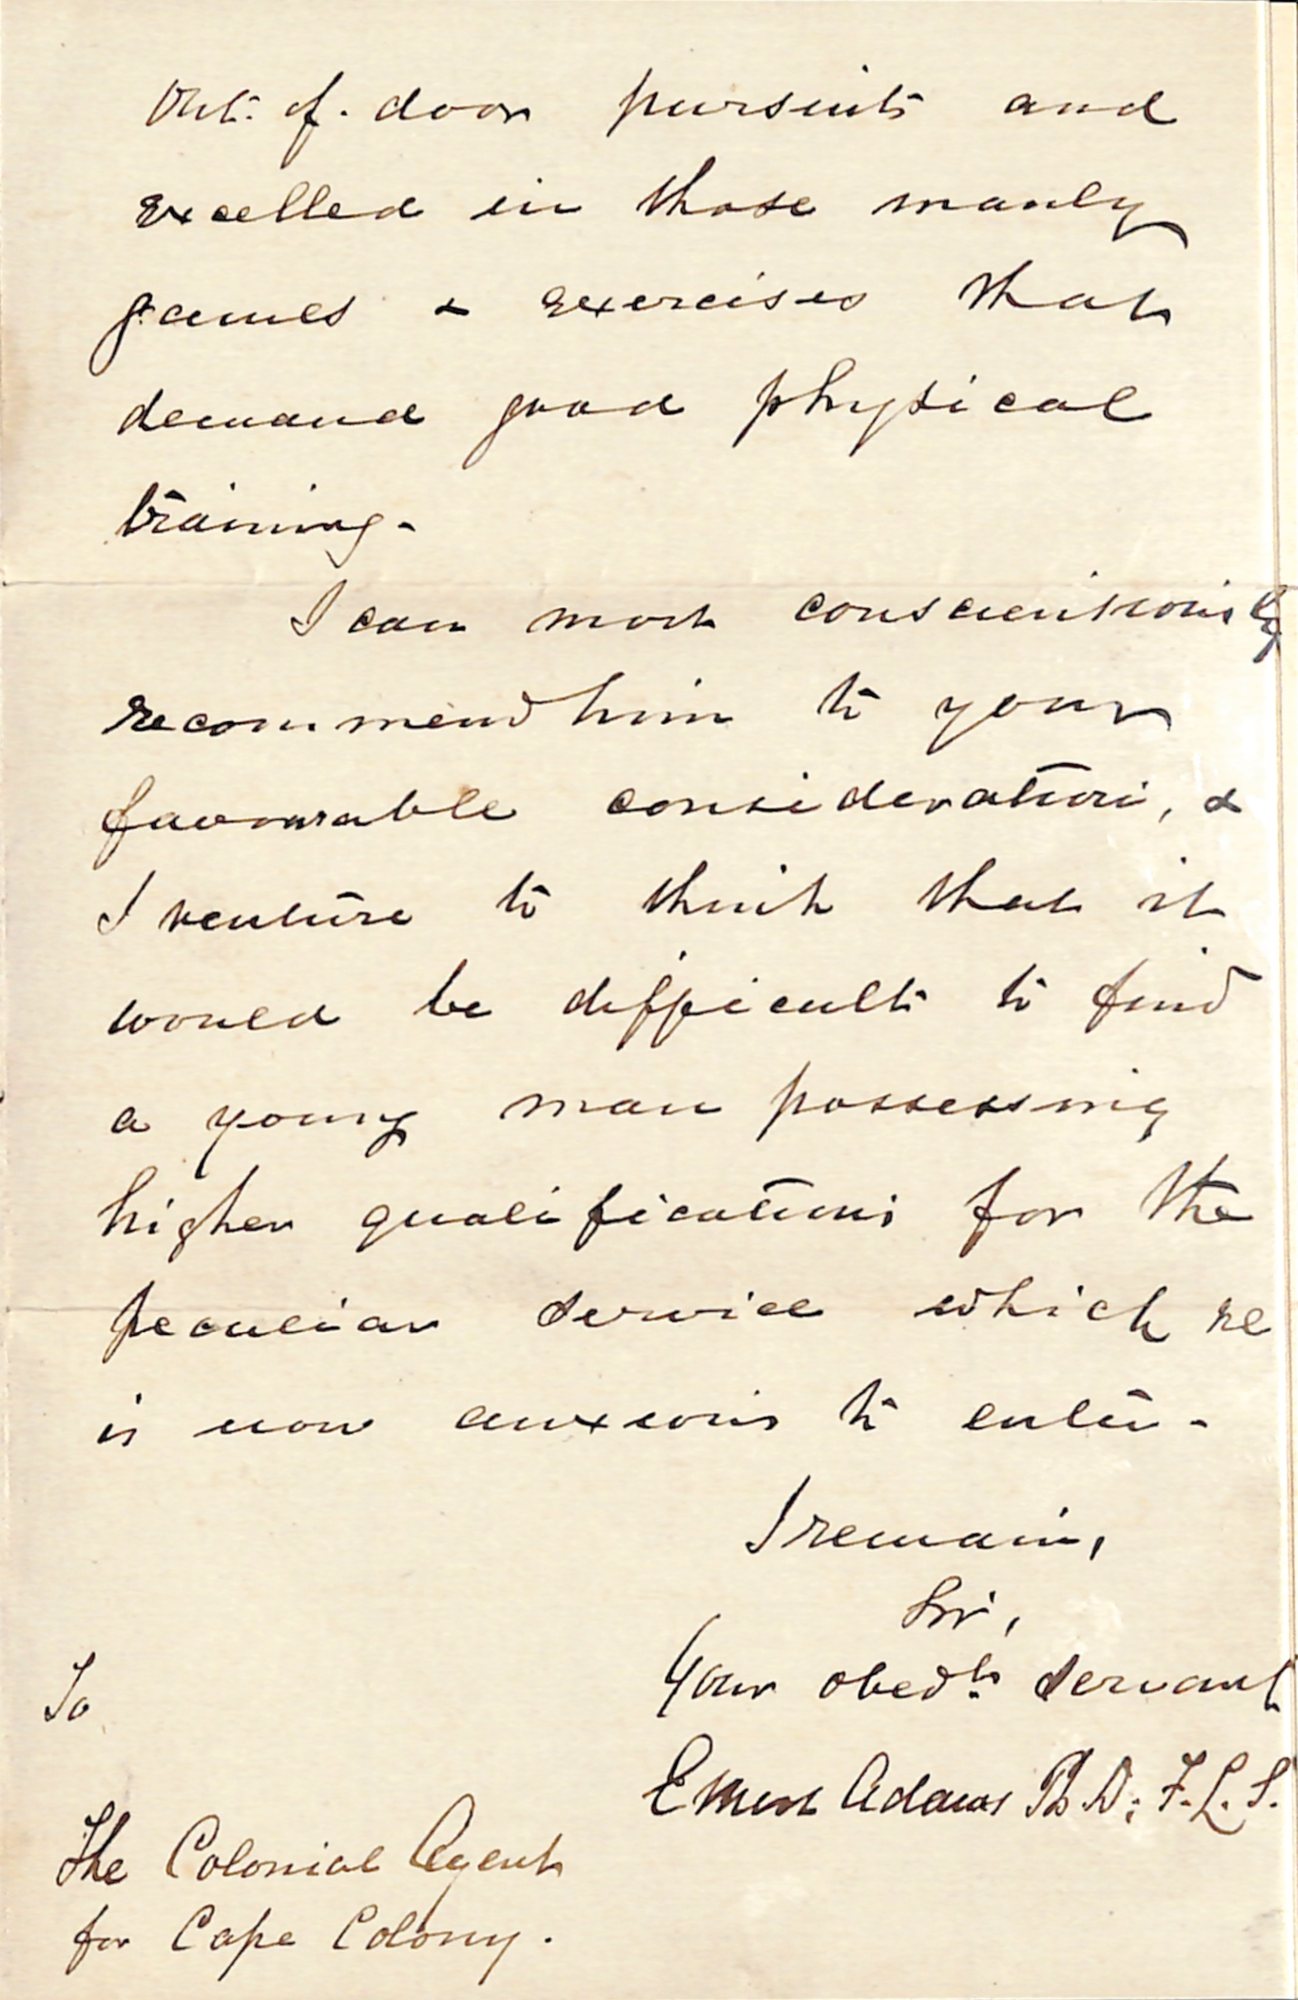 Out-of-door pursuits and
excelled in those manly
games & exercises that
demand good physical
training-
I can most conscientiously
recommend him to your
favourable consideration, &
I venture to think that it
would be difficult to find
a young man possessing
higher qualifications for the
peculiar service which he
is now anxious to enter-
I remain,
Sir,
Your obedt. servant
Ernest Adams Ph.D; F.L.S.
To
The Colonial Agent
for Cape Colony.